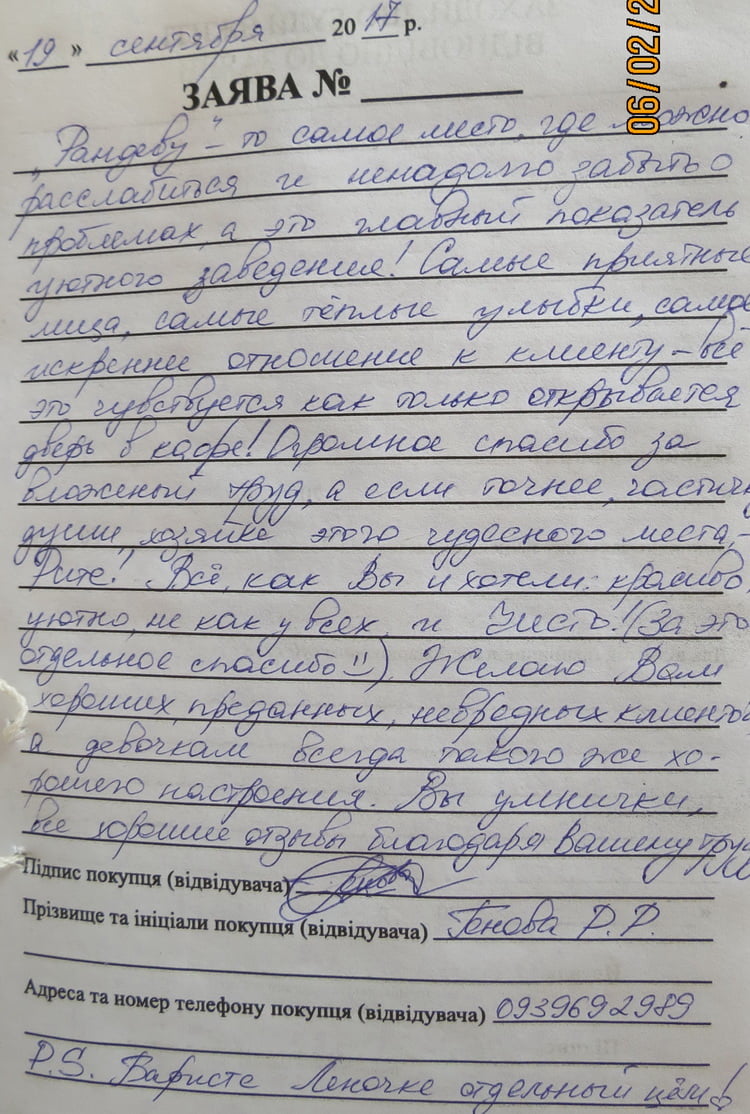 06/02/2
«19» сентября 2017 р.
ЗАЯВА №
„Рандеву" – то самое место, где можно
расслабиться и ненадолго забыть о
проблемах, а это главный показатель
уютного заведения! Самые приятные
лица, самые тёплые улыбки, самое
искреннее отношение к клиенту – всё
это чувствуется как только открывается
дверь в кафе! Огромное спасибо за
вложеный труд, а если точнее, частичку
души, хозяйке этого чудесного места, –
Рите! Всё, как Вы и хотели: красиво
уютно, не как у всех, и Чисто! (За это
отдельное спасибо =)). Желаю Вам
хороших, преданных, невредных клиентов,
а девочкам всегда такого же хо-
рошего настроения. Вы умнички,
все хорошие отзывы благодаря Вашему труду
Підпис покупця (відвідувача)
Прізвище та ініціали покупця (відвідувача) Генова Р. Р.
Адреса та номер телефону покупця (відвідувача) 0939692989
P.S. Баристе Леночке отдельный цём!